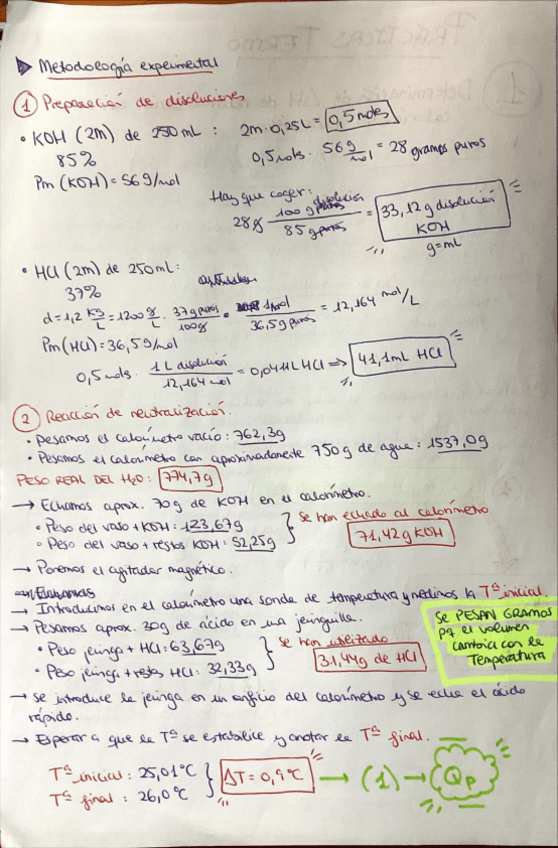 Metodología experimental
① Preparación de disoluciones
• KOH (2m) de 250mL : 2m·0,25L = 0,5moles
85%
0,5mols · 56 g/mol = 28 gramos puros
Pm (KOH) = 56g/mol
Hay que coger:
28g · 100 g disolución / 85 g puros = 33,12g disolución KOH
g=mL
• HCl (2m) de 250mL:
37%
d=1,2 Kg/L = 1200 g/L · 37g puros / 100g · 1mol / 36,5g puros = 12,164 mol/L
Pm(HCl)=36,5g/mol
0,5mols · 1L disolución / 12,164 mol = 0,0411L HCl ⇒ 41,1mL HCl
② Reacción de neutralización.
• Pesamos el calorímetro vacío: 762,3g
• Pesamos el calorímetro con aproximadamente 750g de agua: 1537,0g
PESO REAL DEL H₂O: 774,7g
→ Echamos aprox. 70g de KOH en el calorímetro.
• Peso del vaso + KOH: 123,67g
• Peso del vaso + restos KOH: 52,25g
Se han echado al calorímetro
71,42g KOH
→ Ponemos el agitador magnético.
→ Introducimos en el calorímetro una sonda de temperatura y medimos la Tª inicial.
→ Pesamos aprox. 30g de ácido en una jeringuilla.
• Peso jeringa + HCl: 63,67g
• Peso jeringa + restos HCl: 32,33g
Se han utilizado
31,44g de HCl
SE PESAN GRAMOS
pq el volumen
cambia con la
Temperatura
→ Se introduce la jeringa en un orificio del calorímetro y se echa el ácido
rápido.
→ Esperar a que la Tª se estabilice y anotar la Tª final.
Tª inicial: 25,01ºC
Tª final : 26,0ºC
ΔT = 0,9ºC → (1) → Qp